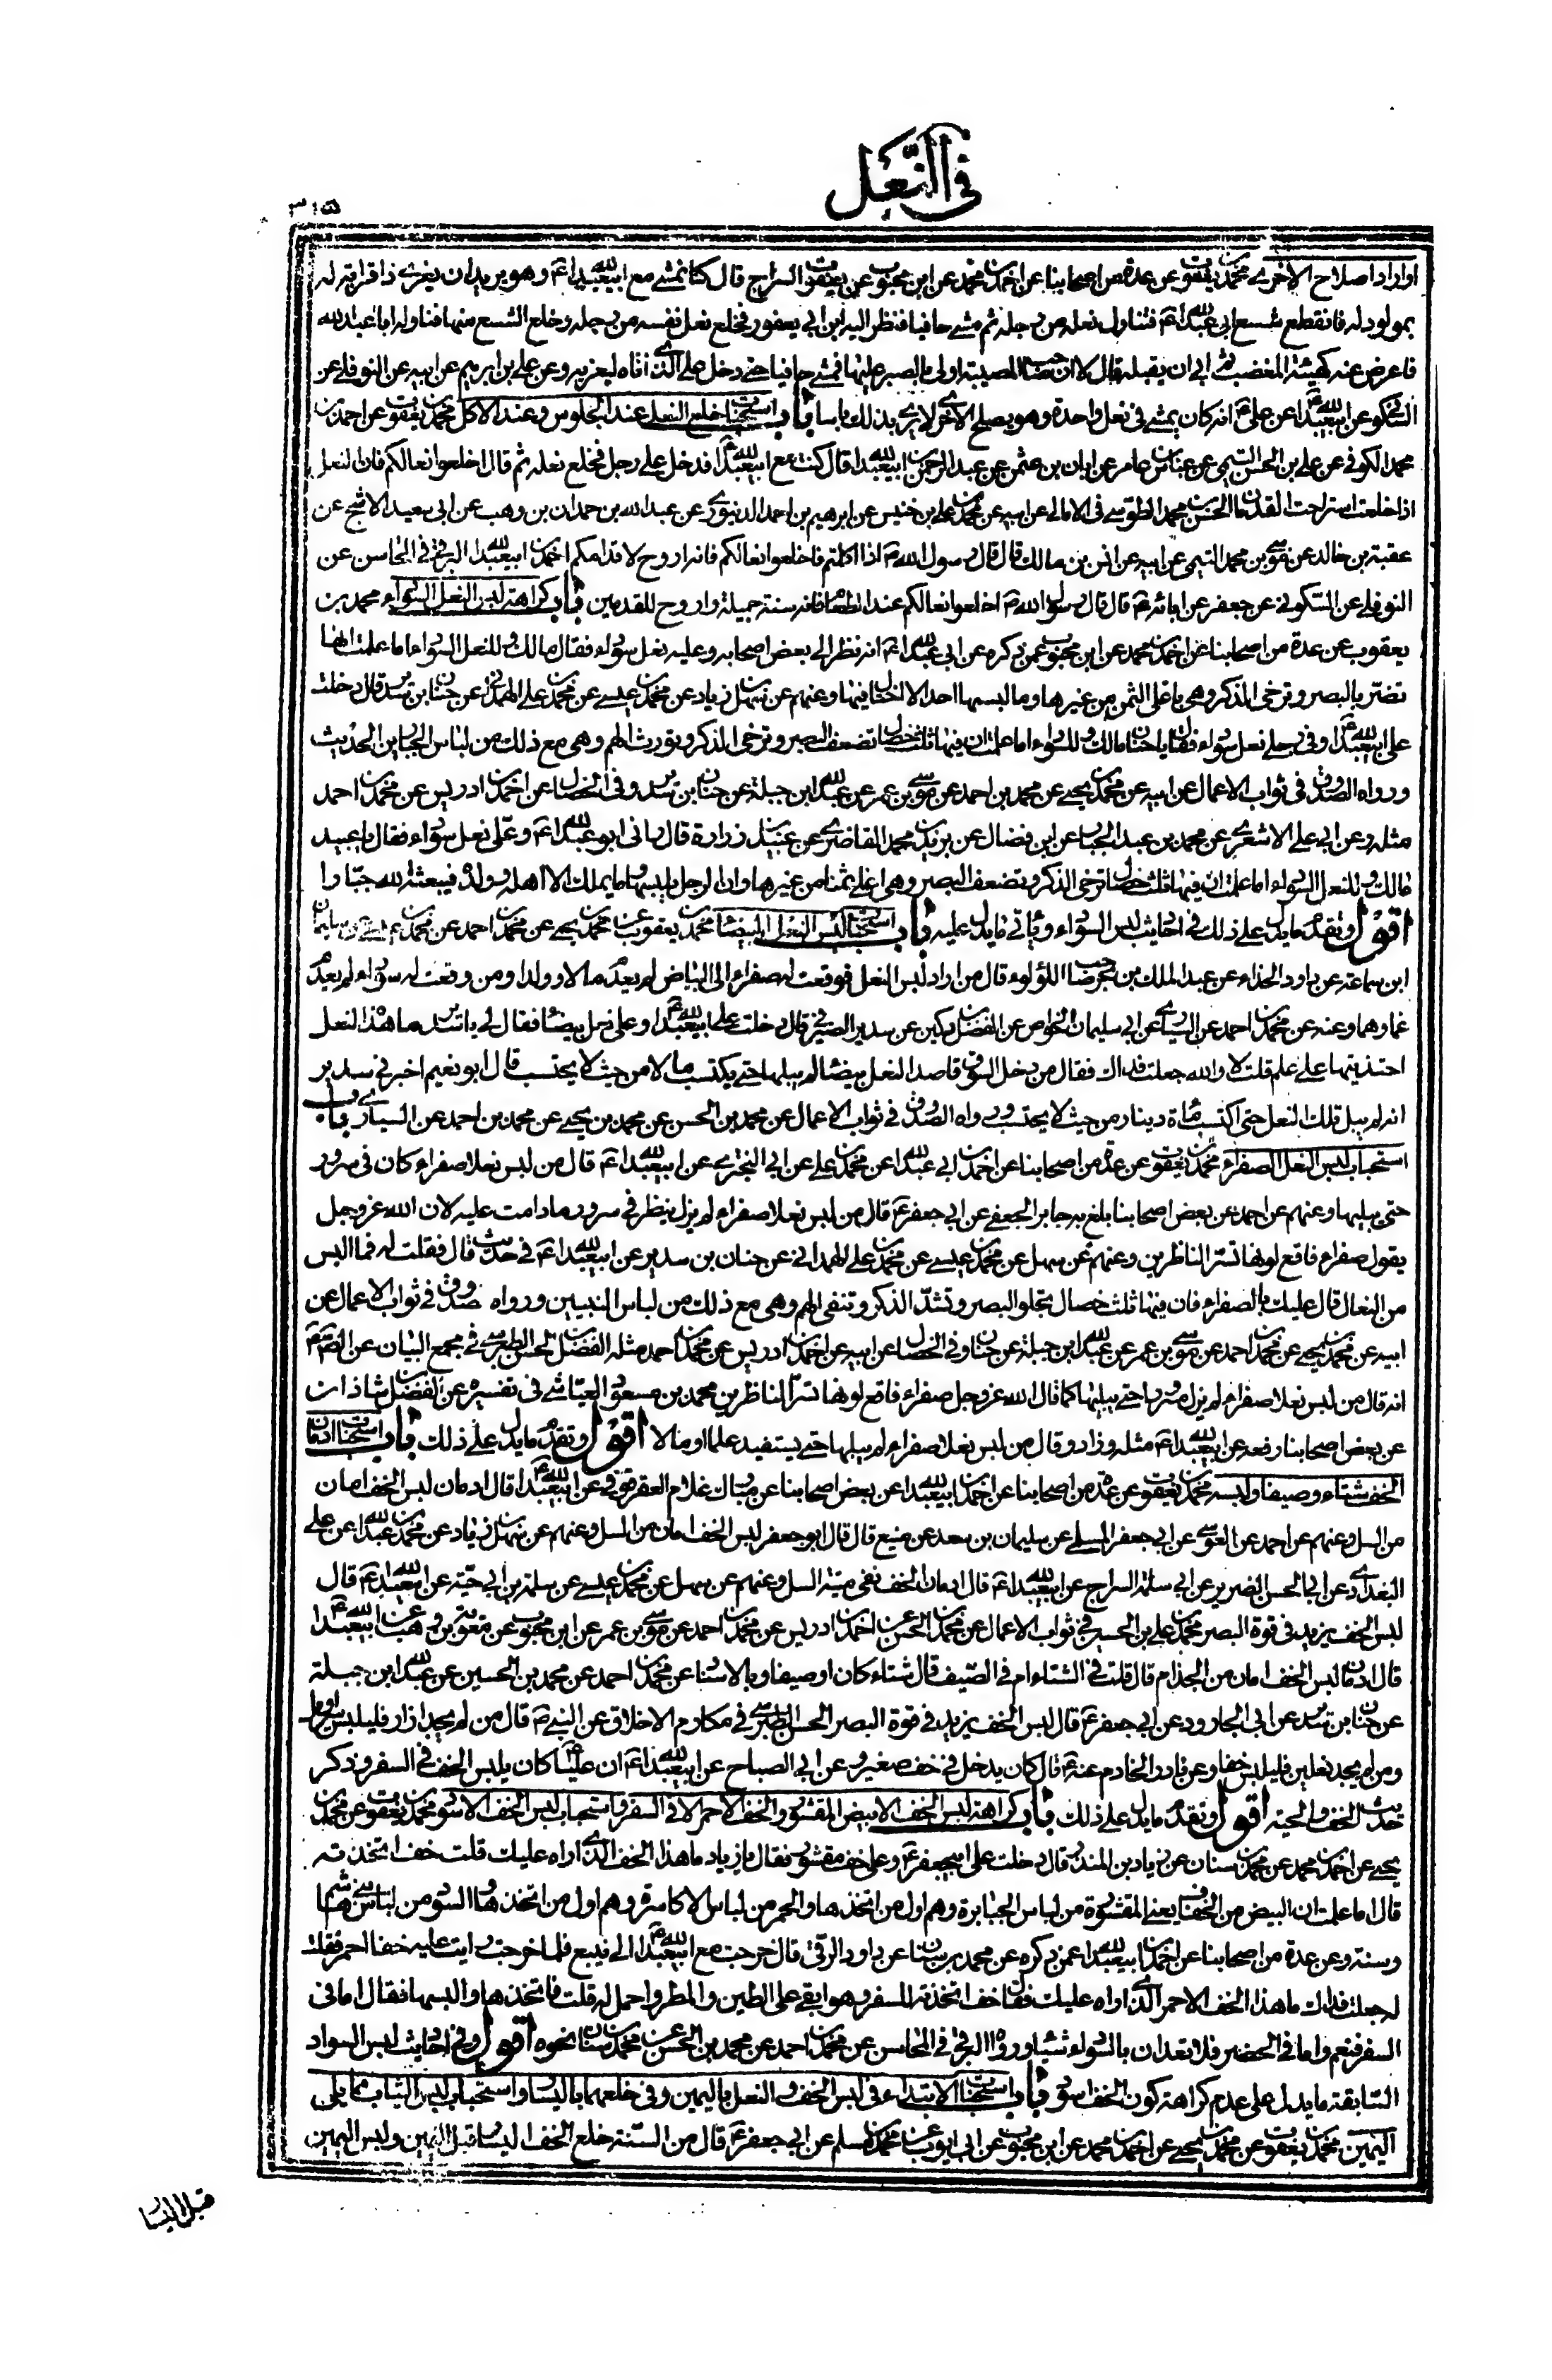 في النعل
٣١٥
او اراد اصلاح الاخرى محمد بن يعقوب عن عدة من اصحابنا عن احمد بن محمد عن ابن محبوب عن يعقوب السراج قال كنا نمشي مع ابي عبد الله ع وهو يريد ان يعزي ذا قرابة له
بمولود له فانقطع شسع ابي عبد الله ع فتناول نعله من رجله ثم مشى حافيا فنظر اليه ابن ابي يعفور فخلع نعل نفسه من رجله وخلع الشسع منها فناوله ابا عبد الله
فاعرض عنه كهيئة المغضب ثم ابى ان يقبله قال لا ان صاحب المصيبة اولى بالصبر عليها فمشى حافيا حتى دخل على الذي اتاه ليعزيه وعن علي بن ابرهيم عن ابيه عن النوفلي عن
السكوني عن ابي عبد الله ع عن علي ع انه كان يمشي في نعل واحدة وهو يصلح الاخرى لا يرى بذلك باسا باب استحباب خلع النعل عند الجلوس وعند الاكل محمد بن يعقوب عن احمد بن
محمد الكوفي عن علي بن الحسن التيمي عن عباس بن عامر عن ابان بن عثمن عن عبد الرحمن بن ابي عبد الله قال كنت مع ابي عبد الله ع فدخل على رجل فخلع نعله ثم قال اخلعوا نعالكم فان النعل
اذا خلعت استراحت القدمان الحسن بن محمد الطوسي في الامالي عن ابيه عن محمد بن علي بن خنيس عن ابرهيم بن احمد الدينوري عن عبد الله بن حمدان بن وهب عن ابي سعيد الاشج عن
عقبة بن خالد عن موسى بن محمد التيمي عن ابيه عن انس بن مالك قال قال رسول الله ص اذا اكلتم فاخلعوا نعالكم فانه اروح لاقدامكم احمد بن ابي عبد الله البرقي في المحاسن عن
النوفلي عن السكوني عن جعفر عن ابائه ع قال قال رسول الله ص اخلعوا نعالكم عند الطعام فانه سنة جميلة واروح للقدمين باب كراهة لبس النعل السوداء محمد بن
يعقوب عن عدة من اصحابنا عن احمد بن محمد عن ابن محبوب عمن ذكره عن ابي عبد الله ع انه نظر الى بعض اصحابه وعليه نعل سوداء فقال مالك وللنعل السوداء اما علمت انها
تضر بالبصر وترخي الذكر وهي باغلى الثمن من غيرها وما لبسها احد الا اختال فيها وعنهم عن سهل بن زياد عن محمد بن عيسى عن محمد بن علي الهمداني عن حنان بن سدير قال دخلت
على ابي عبد الله ع وفي رجلي نعل سوداء فقال يا حنان مالك وللسوداء اما علمت ان فيها ثلث خصال تضعف البصر وترخي الذكر وتورث الهم وهي مع ذلك من لباس الجبارين الحديث
ورواه الصدوق في ثواب الاعمال عن ابيه عن محمد بن يحيى عن محمد بن احمد عن موسى بن عمر عن عبد الله ابن جبلة عن حنان بن سدير وفي الخصال عن احمد بن ادريس عن محمد بن احمد
مثله وعن ابي علي الاشعري عن محمد بن عبد الجبار عن ابن فضال عن بريد بن محمد الغاضري عن عبيد بن زرارة قال راني ابو عبد الله ع وعلي نعل سوداء فقال يا عبيد
مالك وللنعل السوداء اما علمت ان فيها ثلث خصال ترخي الذكر وتضعف البصر وهي اغلى ثمنا من غيرها وان الرجل يلبسها وما يملك الا اهله وولده فيبعثه الله جبارا
اقول وتقدم ما يدل على ذلك في احاديث لبس السواد وياتي ما يدل عليه باب استحباب لبس النعل البيضاء محمد بن يعقوب عن محمد بن يحيى عن محمد بن احمد عن محمد بن عيسى عن سليمان
ابن سماعة عن داود الحذاء عن عبد الملك بن بحر صاحب اللؤلؤ قال من اراد لبس النعل فوقعت له صفراء الى البياض لم يعدم مالا وولدا ومن وقعت له سوداء لم يعدم
غما وهما وعنه عن محمد بن احمد عن السياري عن ابي سليمان الخواص عن الفضل بن دكين عن سدير الصيرفي قال دخلت على ابي عبد الله ع وعلي نعل بيضاء فقال لي يا سدير ما هذا النعل
احتذيتها على علم قلت لا والله جعلت فداك فقال من دخل السوق قاصدا لنعل بيضاء لم يبلها حتى يكتسب مالا من حيث لا يحتسب قال ابو نعيم اخبرني سدير
انه لم يبل تلك النعل حتى اكتسب مائة دينار من حيث لا يحتسب ورواه الصدوق في ثواب الاعمال عن محمد بن الحسن عن محمد بن يحيى عن محمد بن احمد عن السياري باب
استحباب لبس النعل الصفراء محمد بن يعقوب عن عدة من اصحابنا عن احمد بن ابي عبد الله عن محمد بن علي عن ابي البختري عن ابي عبد الله ع قال من لبس نعلا صفراء كان في سرور
حتى يبليها وعنهم عن احمد عن بعض اصحابنا بلغ به جابر الجعفي عن ابي جعفر ع قال من لبس نعلا صفراء لم يزل ينظر في سرور ما دامت عليه لان الله عز وجل
يقول صفراء فاقع لونها تسر الناظرين وعنهم عن سهل عن محمد بن عيسى عن محمد بن علي الهمداني عن حنان بن سدير عن ابي عبد الله ع في حديث قال فقلت له فما البس
من النعال قال عليك بالصفراء فان فيها ثلث خصال تجلو البصر وتشد الذكر وتنفي الهم وهي مع ذلك من لباس النبيين ورواه صدوق في ثواب الاعمال عن
ابيه عن محمد بن يحيى عن محمد بن احمد عن موسى بن عمر عن عبد الله ابن جبلة عن حنان وفي الخصال عن ابيه عن احمد بن ادريس عن محمد بن احمد مثله الفضل بن الحسن الطبرسي في مجمع البيان عن الصم ع
انه قال من لبس نعلا صفراء لم يزل مسرورا حتى يبليها كما قال الله عز وجل صفراء فاقع لونها تسر الناظرين محمد بن مسعود العياشي في تفسيره عن الفضل بن شاذان
عن بعض اصحابنا رفعه عن ابي عبد الله ع مثله وزاد وقال من لبس نعلا صفراء لم يبلها حتى يستفيد علما او مالا اقول وتقدم ما يدل على ذلك باب استحباب ادمان
الخف شتاء وصيفا ولبسه محمد بن يعقوب عن عدة من اصحابنا عن احمد بن ابي عبد الله عن بعض اصحابنا عن مبارك غلام العقرقوفي عن ابي عبد الله ع قال ادمان لبس الخف امان
من السل وعنهم عن احمد عن العوسي عن ابي جعفر المسلي عن سليمان بن سعد عن منيع قال قال ابو جعفر لبس الخف امان من السل وعنهم عن سهل بن زياد عن محمد بن عبد الله عن علي
البغدادي عن ابي الحسن الضرير عن ابي سلمة السراج عن ابي عبد الله ع قال ادمان الخف نفى ميتة السل وعنهم عن سهل عن محمد بن عيسى عن سلمة بن ابي حبة عن ابي عبد الله ع قال
لبس الخف يزيد في قوة البصر محمد بن علي بن الحسين في ثواب الاعمال عن محمد بن الحسن عن احمد بن ادريس عن محمد بن احمد عن موسى بن عمر عن ابن محبوب عن معوية بن وهب عن ابي عبد الله ع
قال ادمان لبس الخف امان من الجذام قال قلت في الشتاء ام في الصيف قال شتاء كان او صيفا وبالاسناد عن محمد بن احمد عن محمد بن الحسين عن عبد الله ابن جبلة
عن حنان بن سدير عن ابي الجارود عن ابي جعفر ع قال لبس الخف يزيد في قوة البصر الحسن الطبرسي في مكارم الاخلاق عن النبي ص قال من لم يجد ازار فليلبس سراويل
ومن لم يجد نعلين فليلبس خفا وعن نادر الخادم عنه ع قال كان يدخل في خف صغير وعن ابي الصباح عن ابي عبد الله ع ان عليا ع كان يلبس الخف في السفر وذكر
حديث الخف والحية اقول وتقدم ما يدل على ذلك باب كراهة لبس الخف الابيض المقشور والخف الاحمر الا في السفر واستحباب لبس الخف الاسود محمد بن يعقوب عن محمد بن
يحيى عن احمد بن محمد عن محمد بن سنان عن زياد بن المنذر قال دخلت على ابي جعفر ع وعلي خف مقشور فقال يا زياد ما هذا الخف الذي اراه عليك قلت خف اتخذته
قال اما علمت ان البيض من الخفاف يعني المقشورة من لباس الجبابرة وهم اول من اتخذها والحمر من لباس الاكاسرة وهم اول من اتخذها والسود من لباس بني هاشم
وسنة وعن عدة من اصحابنا عن احمد بن ابي عبد الله عمن ذكره عن محمد بن سنان عن داود الرقي قال خرجت مع ابي عبد الله ع الى ينبع فلما خرجت رايت عليه خفا احمر فقلت
له جعلت فداك ما هذا الخف الاحمر الذي اراه عليك فقال خف اتخذته للسفر وهو ابقى على الطين والمطر واحمل له قلت فاتخذها والبسها فقال اما في
السفر فنعم واما في الحضر فلا تعدلن بالسوداء شيئا ورواه البرقي في المحاسن عن محمد بن احمد عن محمد بن الحسن عن محمد بن سنان نحوه اقول وفي احاديث لبس السواد
السابقة ما يدل على عدم كراهة كون الخف اسود باب استحباب الابتداء في لبس الخف والنعل باليمين وفي خلعهما باليسار واستحباب لبس الثياب مما يلي
اليمين محمد بن يعقوب عن محمد بن يحيى عن احمد بن محمد عن ابن محبوب عن ابي ايوب عن محمد بن مسلم عن ابي جعفر ع قال من السنة خلع الخف اليسار قبل اليمين ولبس اليمين
قبل اليسار